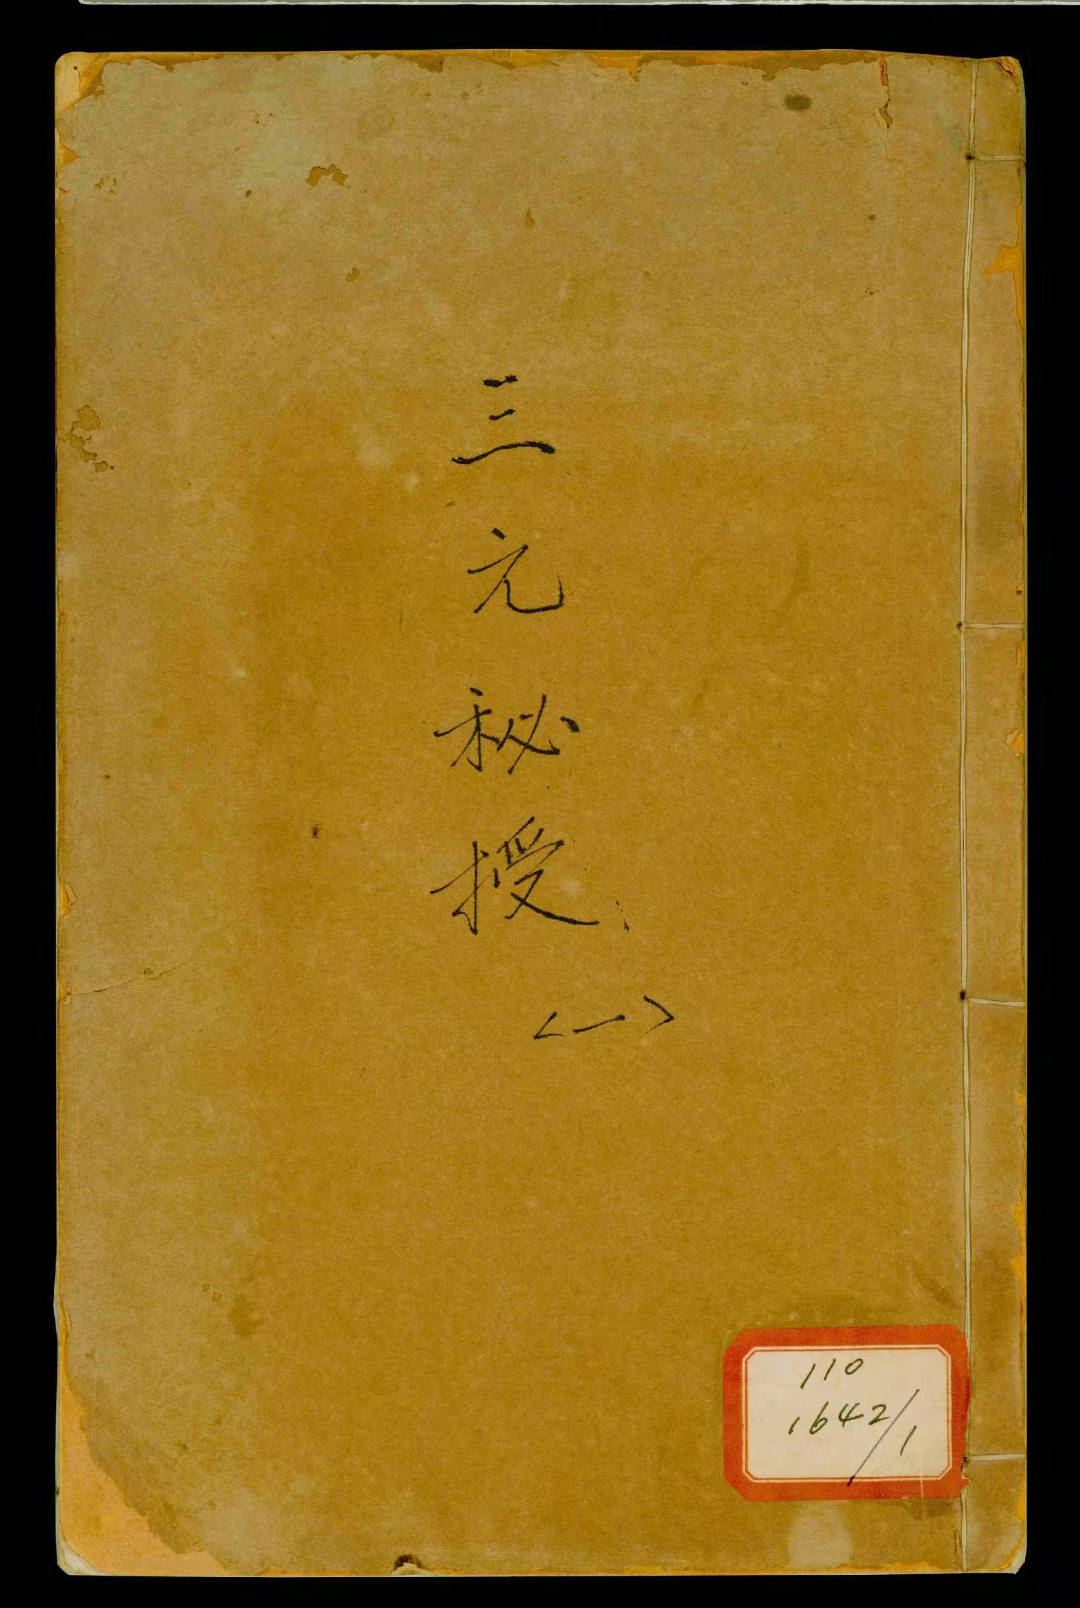 三元秘授
<一>
110
1642/1